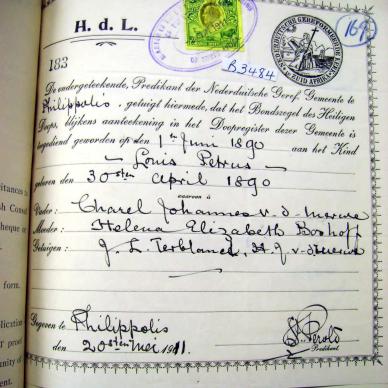 H. d. L.
169
183
B3484
NEDERDUITSCHE GEREFORMEERDE
ZUID AFRIKA
De ondergeteekende, Predikant der Nederduitsche Geref. Gemeente te
Philippolis, getuigt hiermede, dat het Bondszegel des Heiligen
Doops, blijkens aanteekening in het Doopregister dezer Gemeente is
toegediend geworden op den 1sten Juni 1890 aan het Kind
~ Louis Petrus ~
geboren den 30sten April 1890
waarvan is
Vader: Charel Johannes v. d. Merwe
Moeder: Helena Elizabeth Boshoff
Getuigen: J. L. Terblanche, H. J. v. d. Merwe
Gegeven te Philippolis
den 20sten Mei 1911.
Perold
Predikant
itances to
sh Consul
cheque or
form.
plication
r proof
unity of
ent.